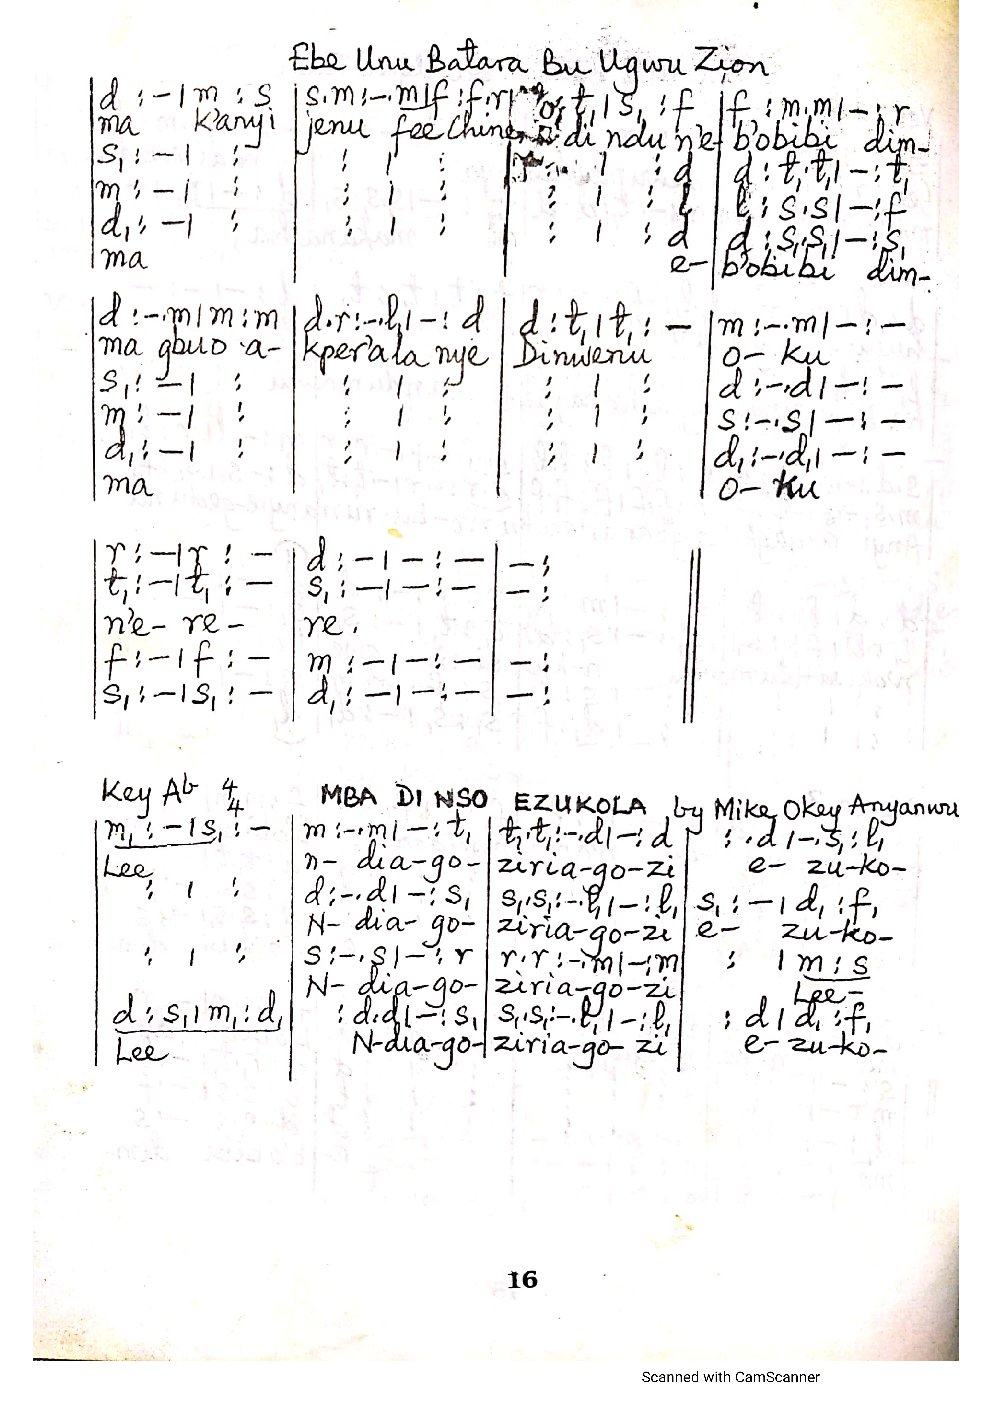 Ebe Unu Batara Bu Ugwu Zion
d : - | m : s | s.m :-. m | f : f.r | t₁ | s₁ : f | f : m.m | - : r
ma k'anyi | jenu fee Chine di ndu n'e- | b'obibi dim-
s₁ : - | : | : | : | : | : d | d : t₁.t₁ | - : t₁
m : - | : | : | : | : | : l | l : s.s | - : f
d₁ : - | : | : | : | : | : d | d : s₁.s₁ | - : s₁
ma e- | b'obibi dim-
d : -. m | m : m | d.r :-. l₁ | - : d | d : t₁ | t₁ : - | m : -. m | - : -
ma gbuo a- | kper'ala nye | Dinwenu | O- ku
s₁ : - | : | : | : | : | : | d : -. d | - : -
m : - | : | : | : | : | : | s : -. s | - : -
d₁ : - | : | : | : | : | : | d₁ : -. d₁ | - : -
ma | O- ku
r : - | r : - | d : - | - : - | - :
t₁ : - | t₁ : - | s₁ : - | - : - | - :
n'e- re- | re.
f : - | f : - | m : - | - : - | - :
s₁ : - | s₁ : - | d₁ : - | - : - | - :
Key Ab 4/4 MBA DI NSO EZUKOLA by Mike Okey Anyanwu
m₁ : - | s₁ : - | m : -. m | - : t₁ | t₁.t₁ : -. d | - : d | : . d | -. s₁ : l₁
Lee | n- dia-go- | ziria-go-zi | e- zu-ko-
: | : | d : -. d | - : s₁ | s₁.s₁ : -. l₁ | - : l₁ | s₁ : - | d₁ : f₁
N- dia- go- | ziria-go-zi | e- zu-ko-
: | : | s : -. s | - : r | r.r : -. m | - : m | : | m : s
N- dia-go- | ziria-go-zi | Lee-
d : s₁ | m₁ : d₁ | : d.d | - : s₁ | s₁.s₁ : -. l₁ | - : l₁ | : d | d₁ : f₁
Lee | N-dia-go- | ziria-go- zi | e- zu-ko-
16
Scanned with CamScanner